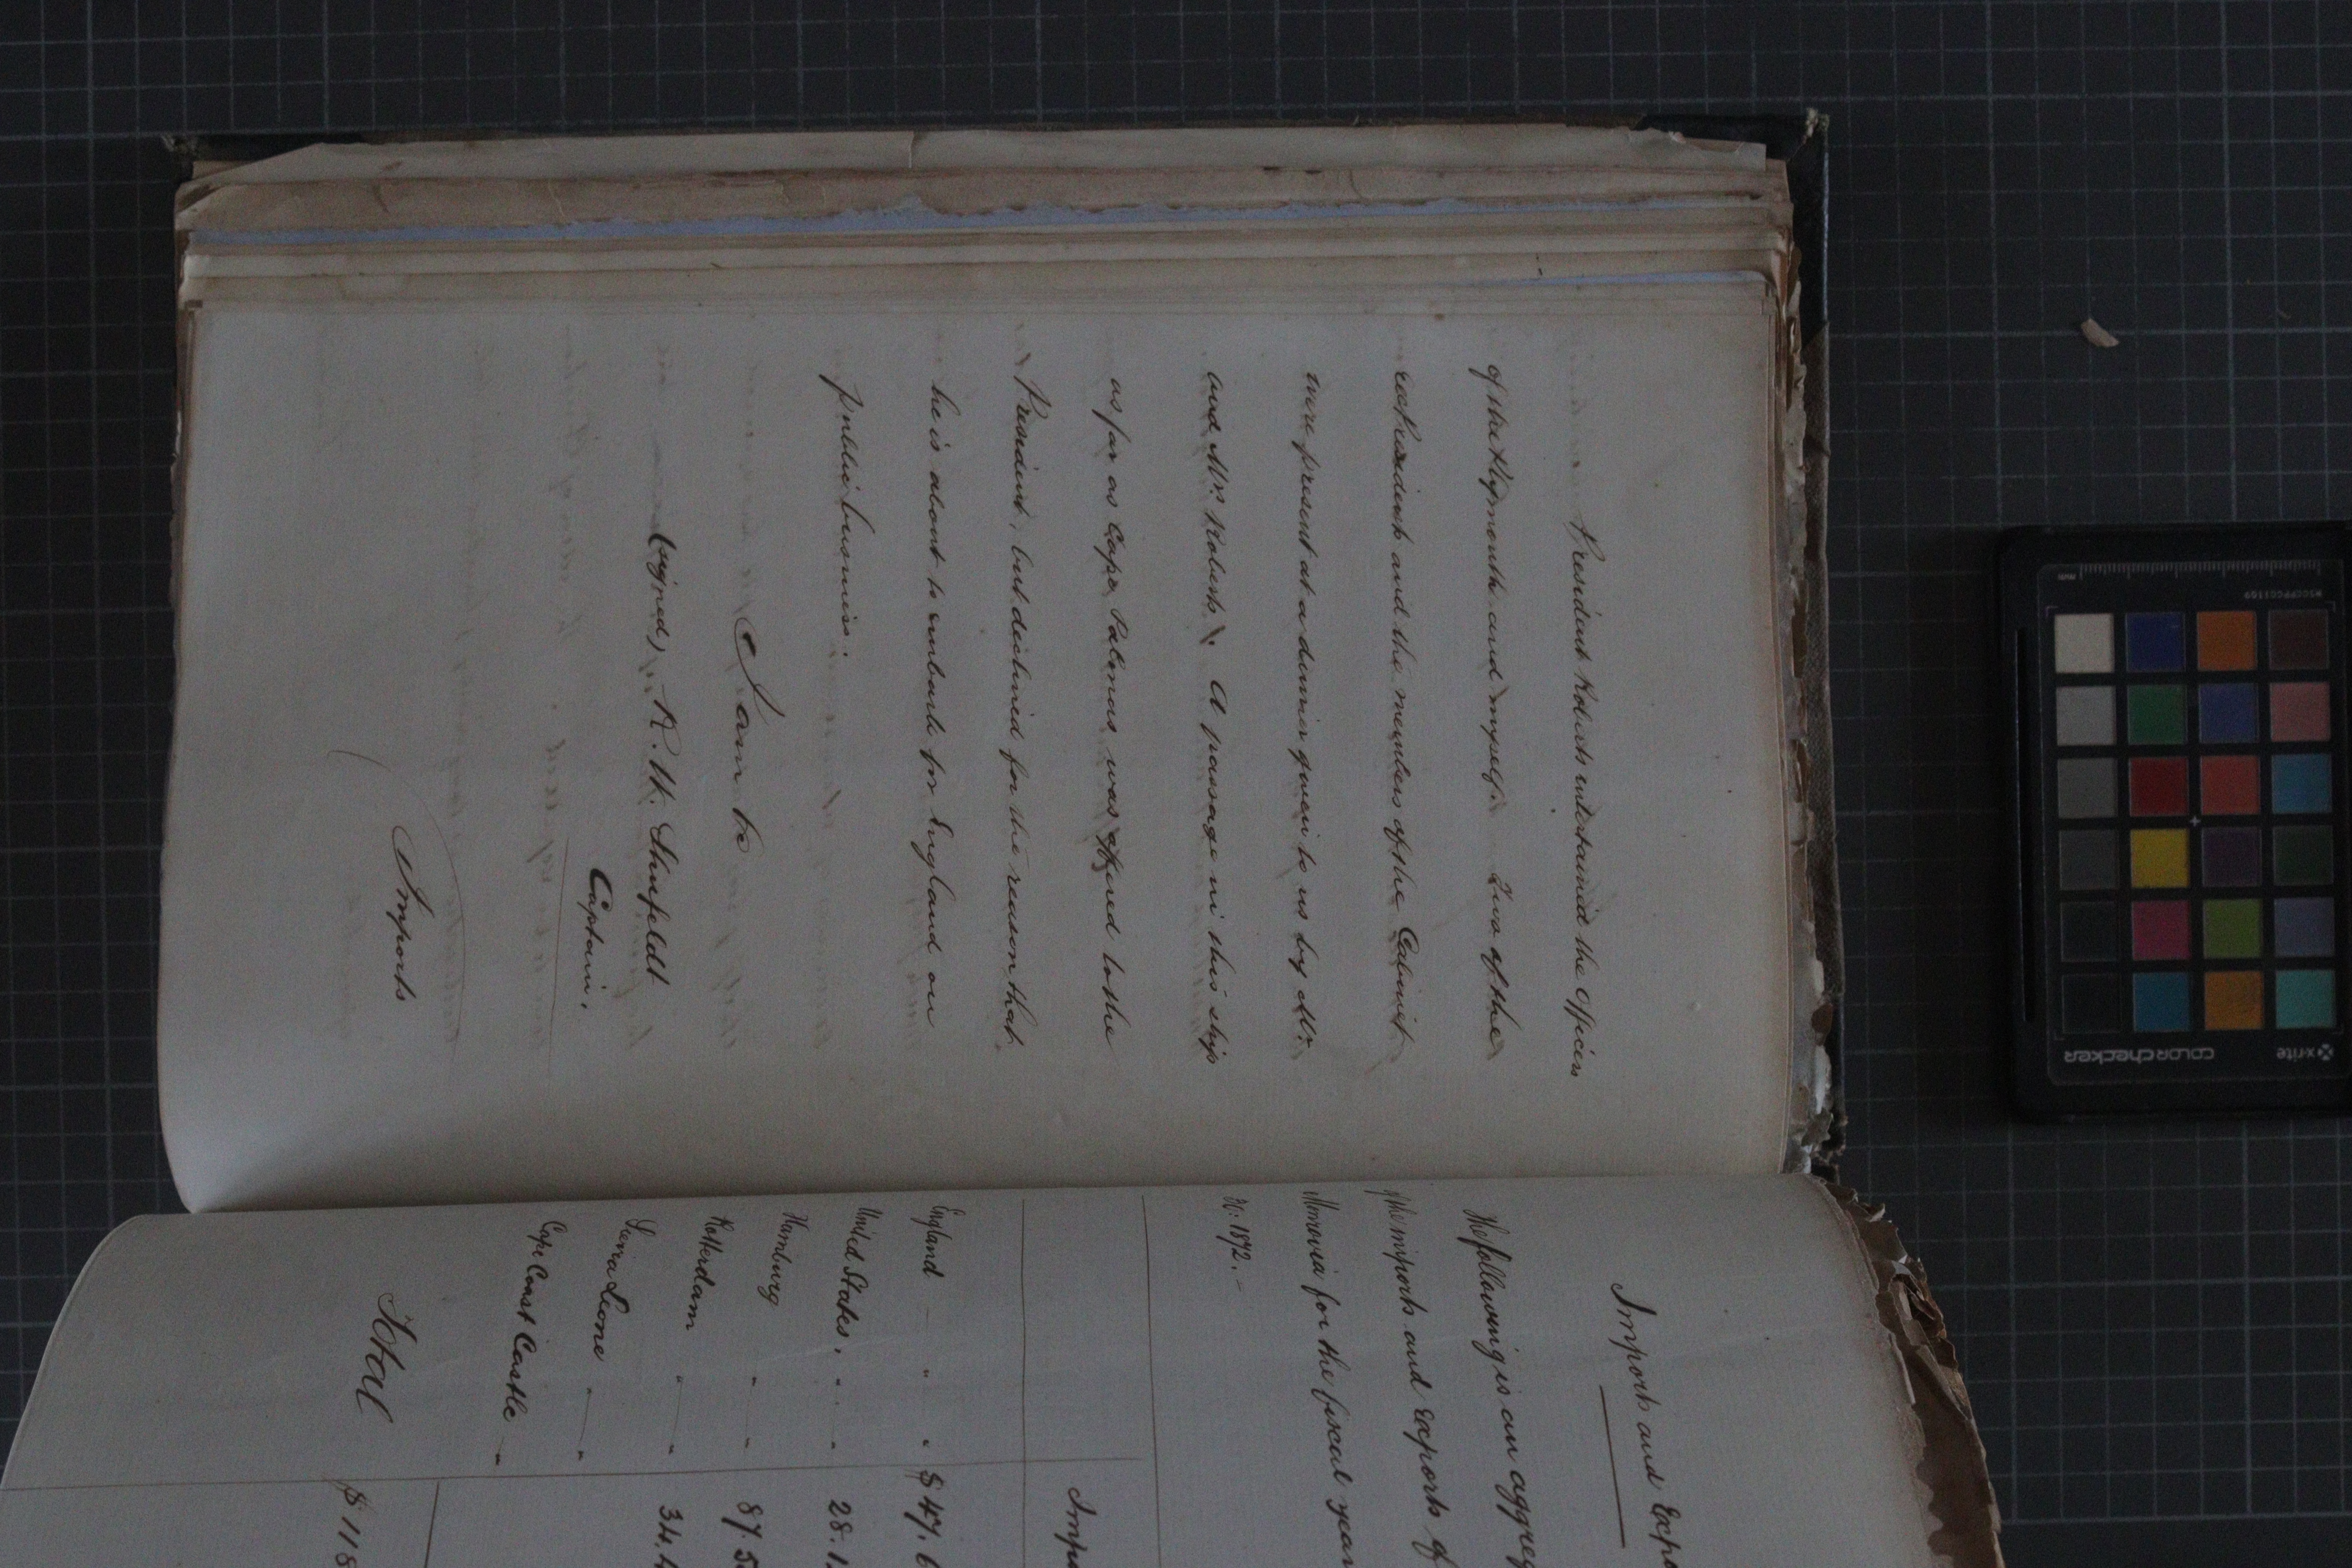 President Roberts entertained the officers
of the Plymouth and myself. Two of the
ex Presidents and the members of the Cabinet
were present at a dinner given to us by Mr.
and Mrs. Roberts. A passage in this ship
as far as Cape Palmas was offered to the
President, but declined for the reason that
he is about to embark for England on
public business.
I am &c
(signed) R. W. Shufeldt
Captain.
Imports
Imports and Expo
The following is an aggreg
of the imports and exports of
Monrovia for the fiscal year
1872.-
Impo
England " " $47.6
United States. " " 28.1
Hamburg " " 87.5
Rotterdam " " 34.4
Sierra Leone " "
Cape Coast Castle "
Total $118
x-rite
colorchecker
MSCCPPCC1109
mm